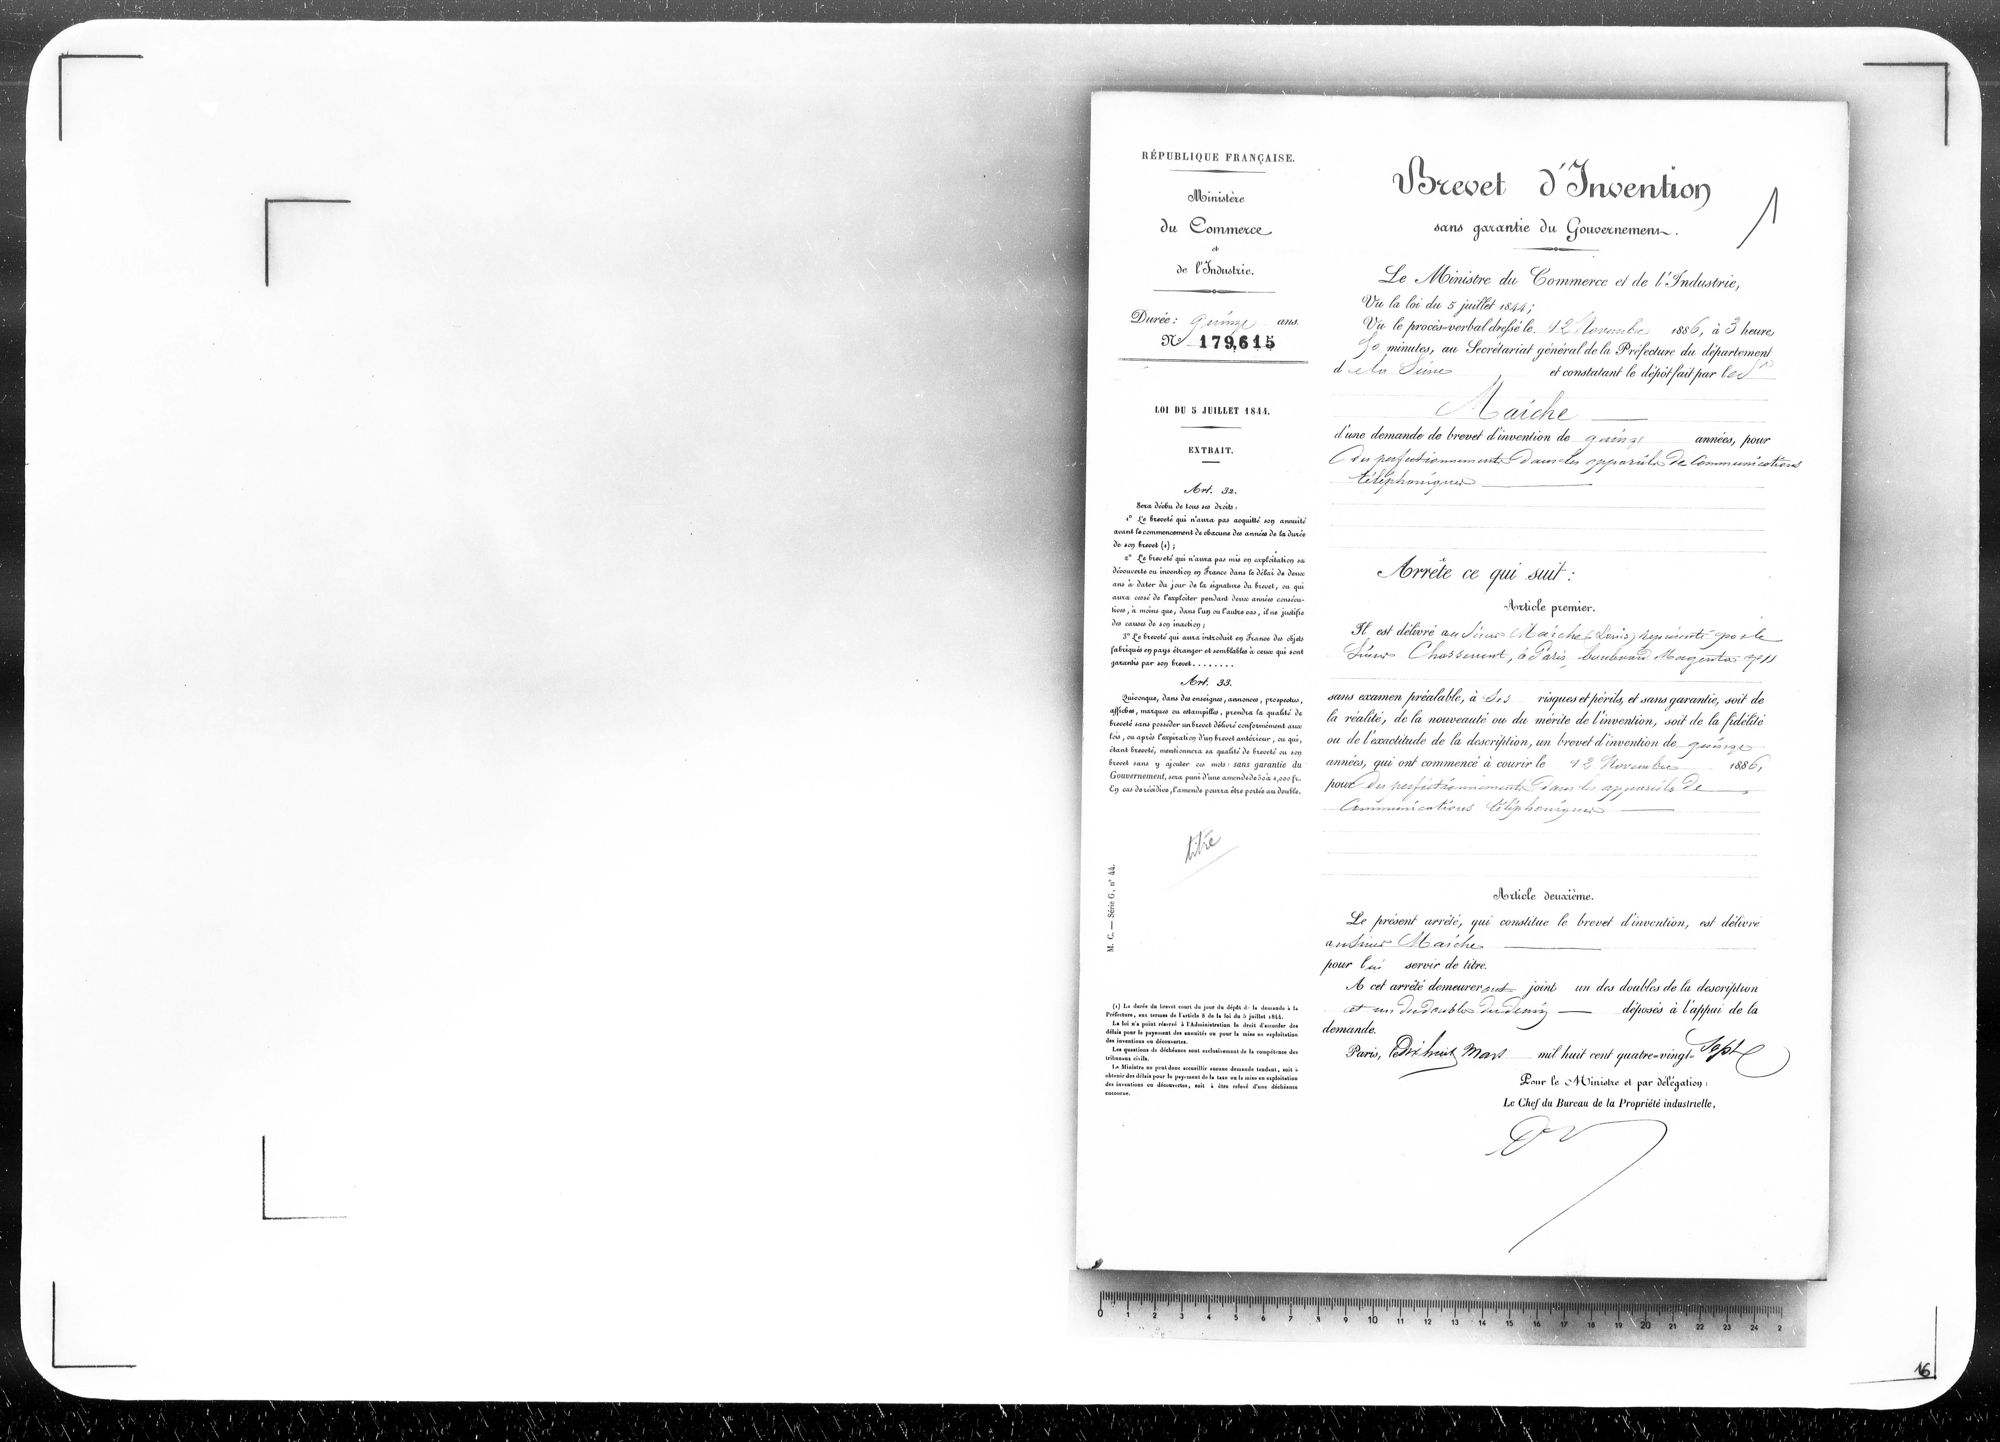 RÉPUBLIQUE FRANÇAISE.
Ministère
du Commerce
et
de l'Industrie.
Durée : quinze ans.
N° 179,615
LOI DU 5 JUILLET 1844.
EXTRAIT.
Art. 32.
Sera déchu de tous ses droits :
1° Le breveté qui n'aura pas acquitté son annuité
avant le commencement de chacune des années de la durée
de son brevet (1) ;
2° Le breveté qui n'aura pas mis en exploitation sa
découverte ou invention en France dans le délai de deux
ans à dater du jour de la signature du brevet, ou qui
aura cessé de l'exploiter pendant deux années consécu-
tives, à moins que, dans l'un ou l'autre cas, il ne justifie
des causes de son inaction ;
3° Le breveté qui aura introduit en France des objets
fabriqués en pays étranger et semblables à ceux qui sont
garantis par son brevet........
Art. 33.
Quiconque, dans des enseignes, annonces, prospectus,
affiches, marques ou estampilles, prendra la qualité de
breveté sans posséder un brevet délivré conformément aux
lois, ou après l'expiration d'un brevet antérieur, ou qui,
étant breveté, mentionnera sa qualité de breveté ou son
brevet sans y ajouter ces mots : sans garantie du
Gouvernement, sera puni d'une amende de 50 à 1,000 fr.
En cas de récidive, l'amende pourra être portée au double.
titre
M. C. — Série G, n° 44.
(1) La durée du brevet court du jour du dépôt de la demande à la
Préfecture, aux termes de l'article 8 de la loi du 5 juillet 1844.
La loi n'a point réservé à l'Administration le droit d'accorder des
délais pour le payement des annuités ou pour la mise en exploitation
des inventions ou découvertes.
Les questions de déchéance sont exclusivement de la compétence des
tribunaux civils.
Le Ministre ne peut donc accueillir aucune demande tendant, soit à
obtenir des délais pour le payement de la taxe ou la mise en exploitation
des inventions ou découvertes, soit à être relevé d'une déchéance
encourue.
Brevet d'Invention
1
sans garantie du Gouvernement.
Le Ministre du Commerce et de l'Industrie,
Vu la loi du 5 juillet 1844 ;
Vu le procès-verbal dressé le 12 Novembre 1886, à 3 heure
50 minutes, au Secrétariat général de la Préfecture du département
de la Seine et constatant le dépôt fait par le Sr
Maîche
d'une demande de brevet d'invention de quinze années, pour
Des perfectionnements dans les appareils de communications
téléphoniques
Arrête ce qui suit :
Article premier.
Il est délivré au Sieur Maîche (Louis) représenté par le
Sieur Chassevent, à Paris, boulevard Magenta n° 11
sans examen préalable, à ses risques et périls, et sans garantie, soit de
la réalité, de la nouveauté ou du mérite de l'invention, soit de la fidélité
ou de l'exactitude de la description, un brevet d'invention de quinze
années, qui ont commencé à courir le 12 Novembre 1886,
pour Des perfectionnements dans les appareils de
communications téléphoniques
Article deuxième.
Le présent arrêté, qui constitue le brevet d'invention, est délivré
au Sieur Maîche
pour lui servir de titre.
A cet arrêté demeureront joint un des doubles de la description
et un des doubles du dessin déposés à l'appui de la
demande.
Paris, le Dix huit Mars mil huit cent quatre-vingt-Sept
Pour le Ministre et par délégation :
Le Chef du Bureau de la Propriété industrielle,
0 1 2 3 4 5 6 7 8 9 10 11 12 13 14 15 16 17 18 19 20 21 22 23 24 2
16